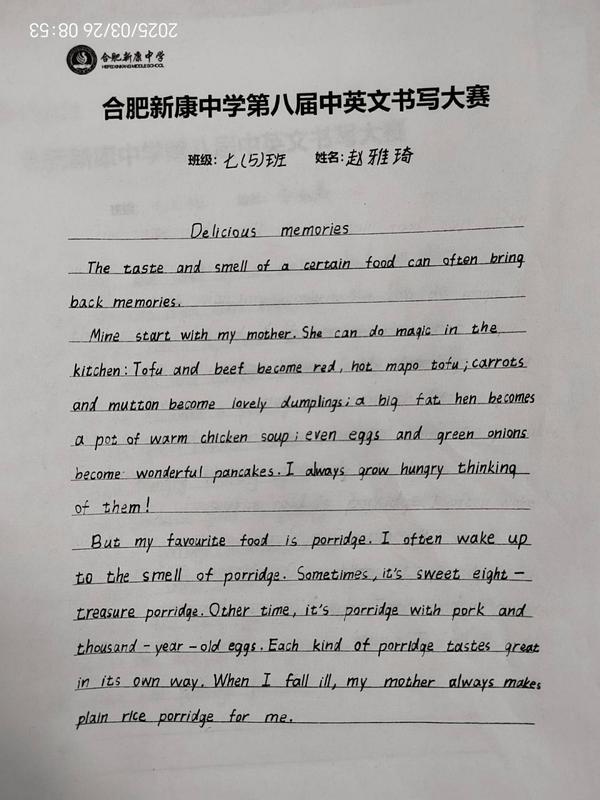 2025/03/26 08:53
合肥新康中学
HEFEI XINKANG MIDDLE SCHOOL
合肥新康中学第八届中英文书写大赛
班级: 七(5)班 姓名: 赵雅琦
Delicious memories
The taste and smell of a certain food can often bring
back memories.
Mine start with my mother. She can do magic in the
kitchen: Tofu and beef become red, hot mapo tofu; carrots
and mutton become lovely dumplings; a big fat hen becomes
a pot of warm chicken soup; even eggs and green onions
become wonderful pancakes. I always grow hungry thinking
of them!
But my favourite food is porridge. I often wake up
to the smell of porridge. Sometimes, it's sweet eight-
treasure porridge. Other time, it's porridge with pork and
thousand-year-old eggs. Each kind of porridge tastes great
in its own way. When I fall ill, my mother always makes
plain rice porridge for me.